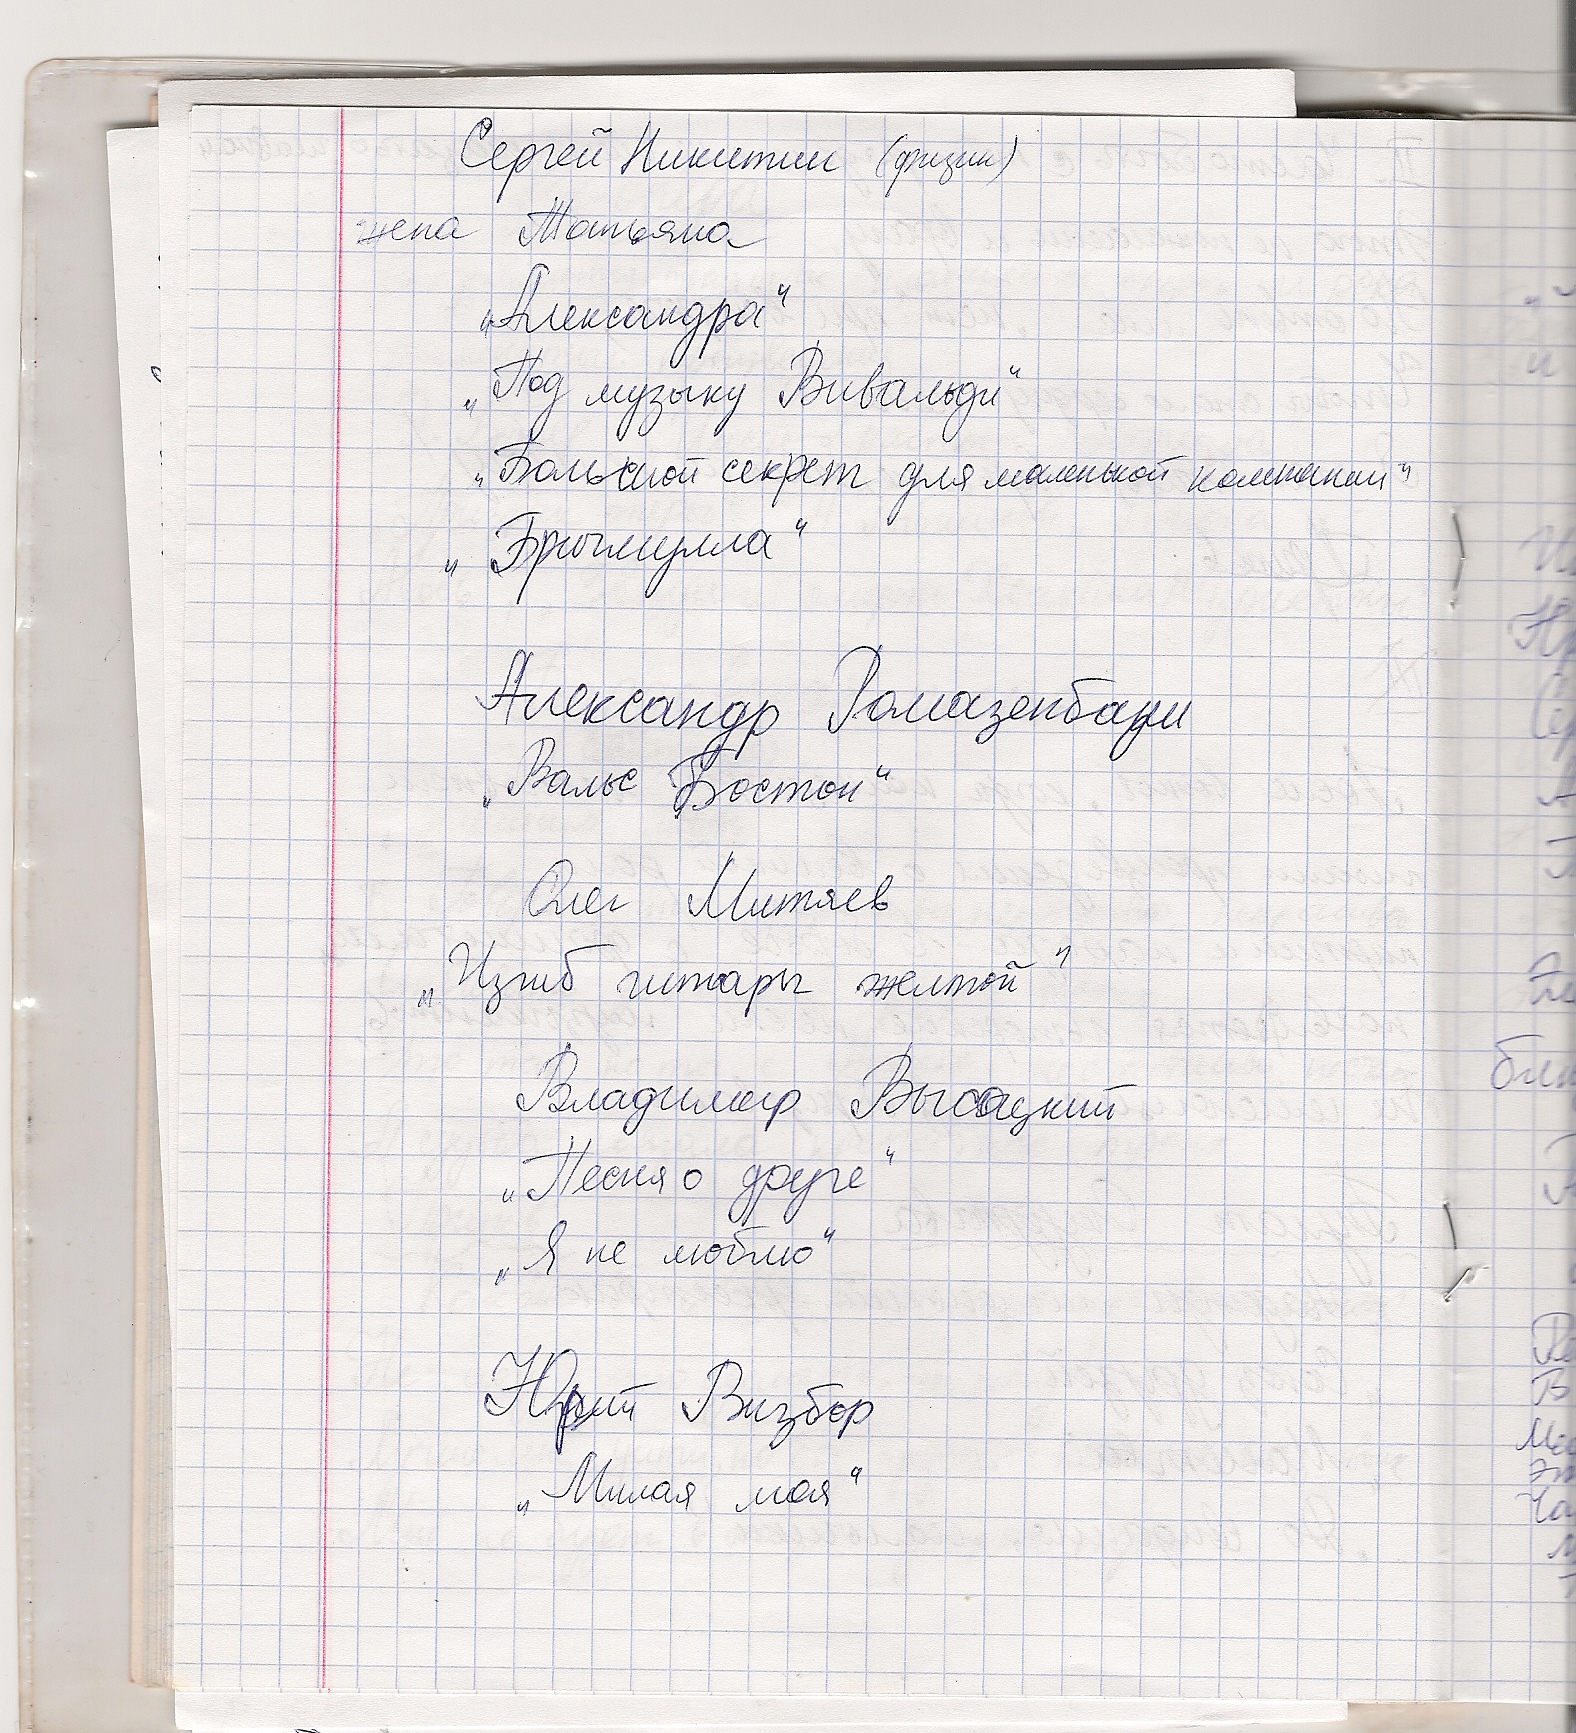 Сергей Никитин (физик)
жена Татьяна
„Александра"
„Под музыку Вивальди"
„Большой секрет для маленькой компании"
„Брычмулла"
Александр Ромазенбаум
„Вальс Бостон"
Олег Митяев
„Изгиб гитары желтой"
Владимир Высоцкий
„Песня о друге"
„Я не люблю"
Юрий Визбор
„Милая моя"